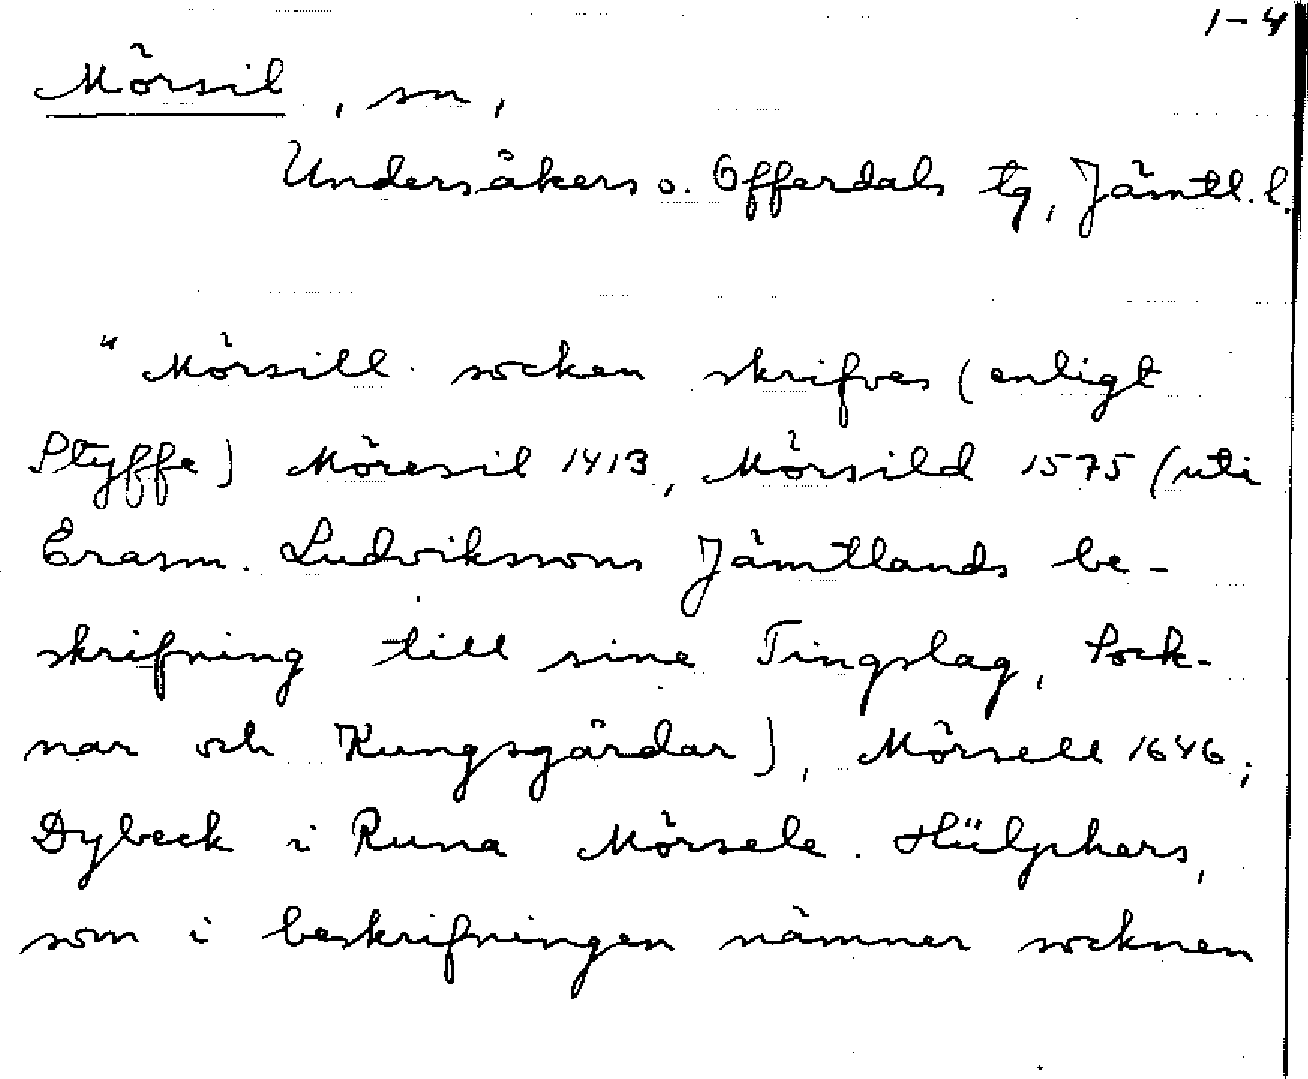 1-4
Mörsil, sn,
Undersåkers o. Offerdals tg, Jämtl. l.
"Mörsill socken skrifves (enligt
Styffe) Möresil 1413, Mörsild 1575 (uti
Erasm. Ludvikssons Jämtlands be-
skrifning till sine Tingslag, Sock-
nar och Kungsgårdar), Mörsell 1646;
Dybeck i Runa Mörsele. Hülphers,
som i beskrifningen nämner socknen